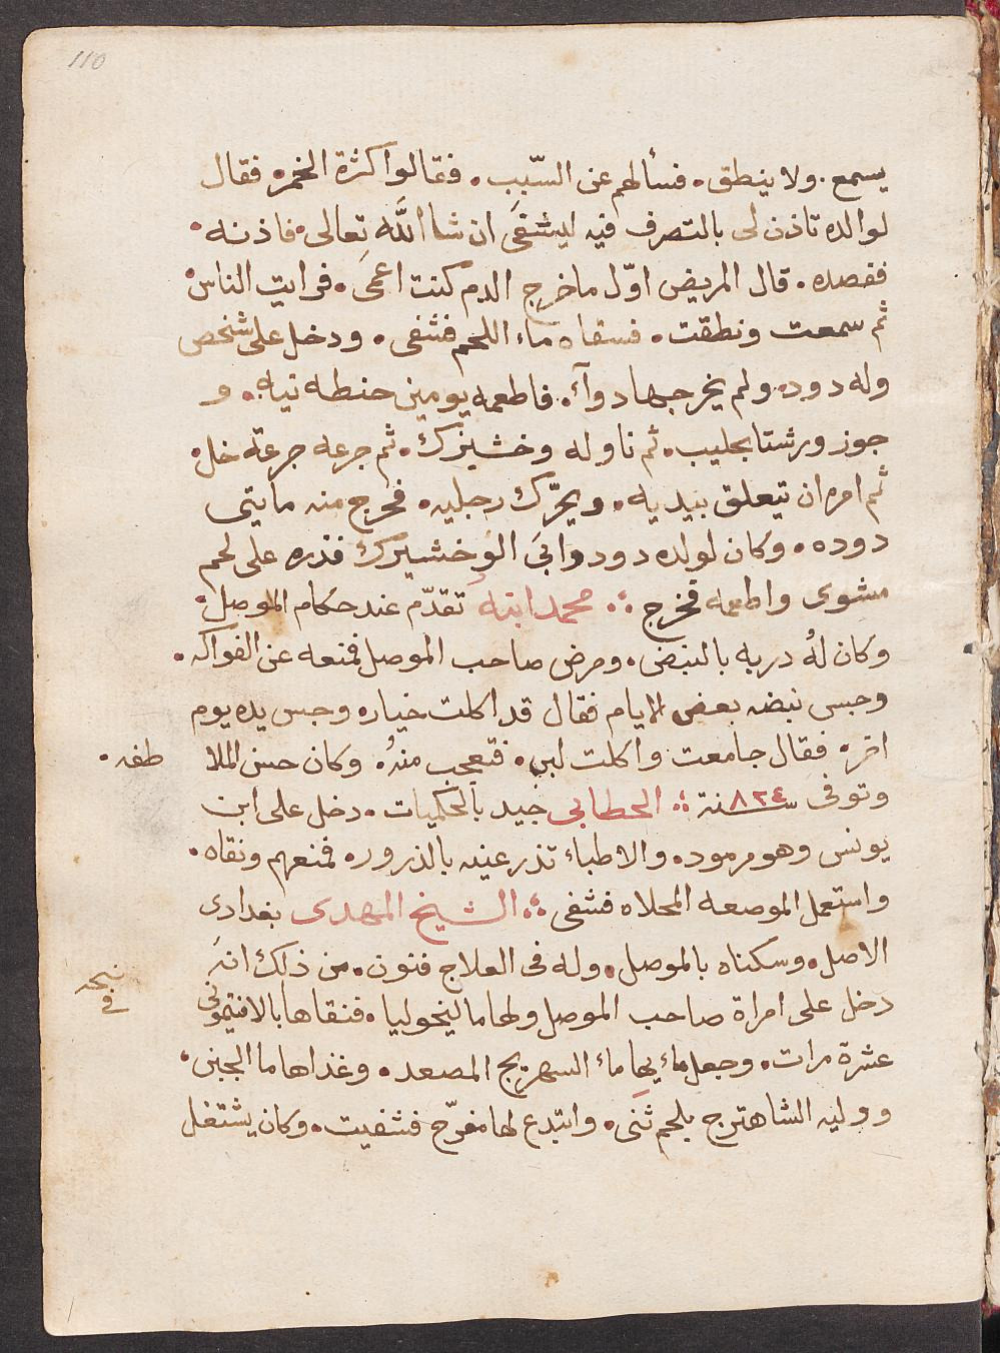 110
يسمع. ولا ينطق. فسألهم عن السّبب. فقالوا كثرة الخمر. فقال
لوالده تاذن لى بالتصرف فيه ليشفَى ان شا اللَّه تعالى. فاذنه.
ففصده. قال المريض اوّل ما خرج الدم كنت اعمَى. فرايت الناس.
ثم سمعت ونطقت. فسقاه ماء اللحم فشفى. ودخل على شخص
وله دود. ولم يخرجها دوآء. فاطعمه يومين حنطه نيه. و
جوز ورشتا بحليب. ثم ناوله وخشيزك. ثم جرعه جرعة خل.
ثم امره ان يتعلق بيديه. ويحرّك رجليه. فخرج منه مايتى
دوده. وكان لولده دود وابَى الوخشيزك فذره على لحم
مشوى واطعمه فخرج ؞ محمد ابنهُ تقدّم عند حكام الموصل.
وكان لهُ دربه بالنبض. ومرض صاحب الموصل فمنعه عن الفواكه.
وجس نبضه بعض الايام فقال قد اكلت خياره وجس يده يوم
اخر. فقال جامعت واكلت لبن. فتعجب منهُ. وكان حسن الملا
طفه.
وتوفى سنة ٨٢٤ ؞ الحطابى جيد بالحكميات. دخل على ابن
يونس وهو مرمود. والاطباء تذر عينه بالذروره فمنعهم ونقاه.
واستعمل الموصعه المحلاه فشفى ؞ الشيخ المهدى بغدادى
الاصل. وسكناه بالموصل. وله فى العلاج فنون. من ذلك انهَ
دخل على امراة صاحب الموصل ولها ماليخوليا. فنقاها بالافتيمونى
عشرة مرات. وجعل ماءيها ماء السهريج المصعد. وغذاها ما الجبن.
ووليه الشاهترج بلحم ثنى. وابتدع لها مفرّح فشفيت. وكان يشتغل